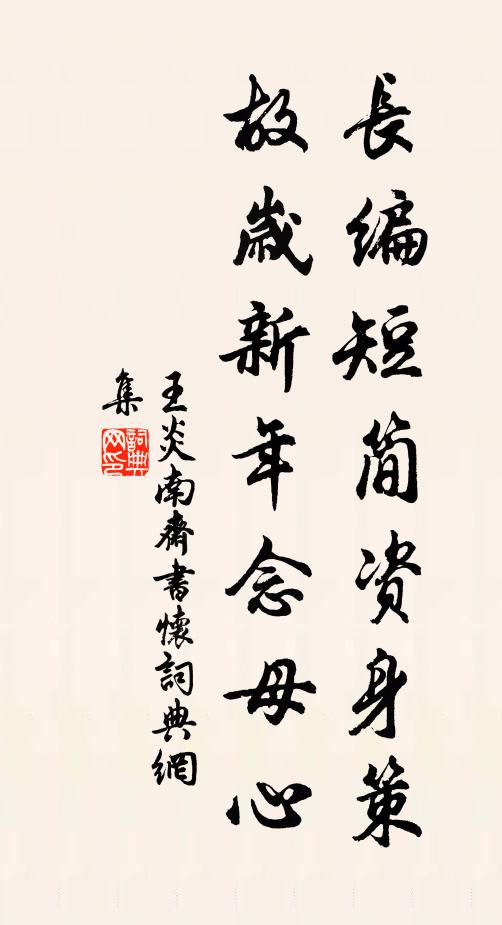 長编短简资身策
故歲新年念母心
王炎南齋書懷詞典網
集
詞典
网印